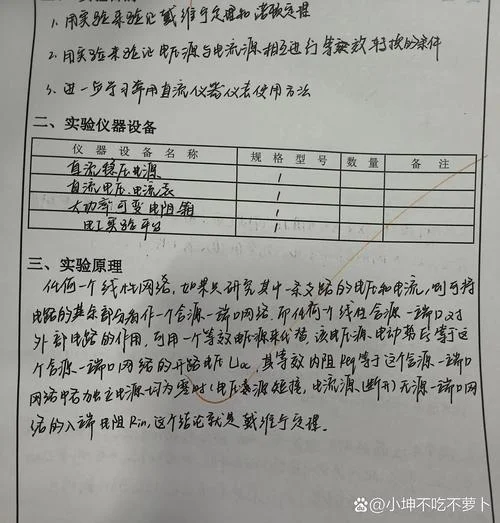 1. 用实验来验证戴维宁定理和诺顿定理
2. 用实验来验证电压源与电流源相互进行等效转换的条件
3. 进一步学习常用直流仪器仪表使用方法
二、实验仪器设备
仪器设备名称 规格型号 数量 备注
直流稳压电源 1
直流电压、电流表 1
大功率可变电阻箱 1
电工实验平台 1
三、实验原理
任何一个线性网络,如果只研究其中一条支路的电压和电流,则可将
电路的其余部分看作一个含源一端口网络,而任何一个线性含源一端口对
外部电路的作用,可用一个等效电压源来代替,该电压源电动势Es等于这
个含源一端口网络的开路电压Uoc,其等效内阻Req等于这个含源一端口
网络中各独立电源均为零时(电压源短接,电流源断开)无源一端口网
络的入端电阻Rin,这个结论就是戴维宁定理。
知乎 @小坤不吃不萝卜